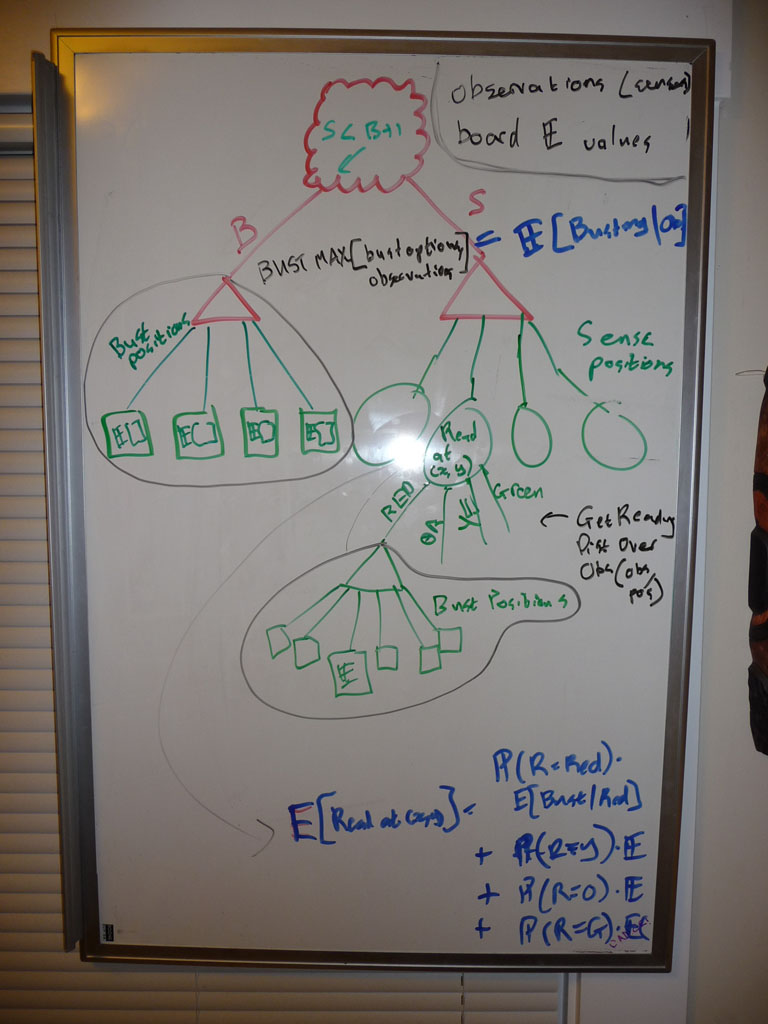 observations (sensor)
board E values
S < B+1
B
S
BUST MAX[bustoptions,
observations]
= E[Busting|Obs]
Bust
positions
E[]
E[]
E[]
E[]
Sense
positions
Read
at
(x,y)
RED
OR
YE
Green
← GetReading
Dist Over
Obs(obs,
pos)
Bust Positions
E
E[Read at (x,y)] =
P(R=Red)·
E[Bust|Red]
+ P(R=y)·E
+ P(R=O)·E
+ P(R=G)·E(